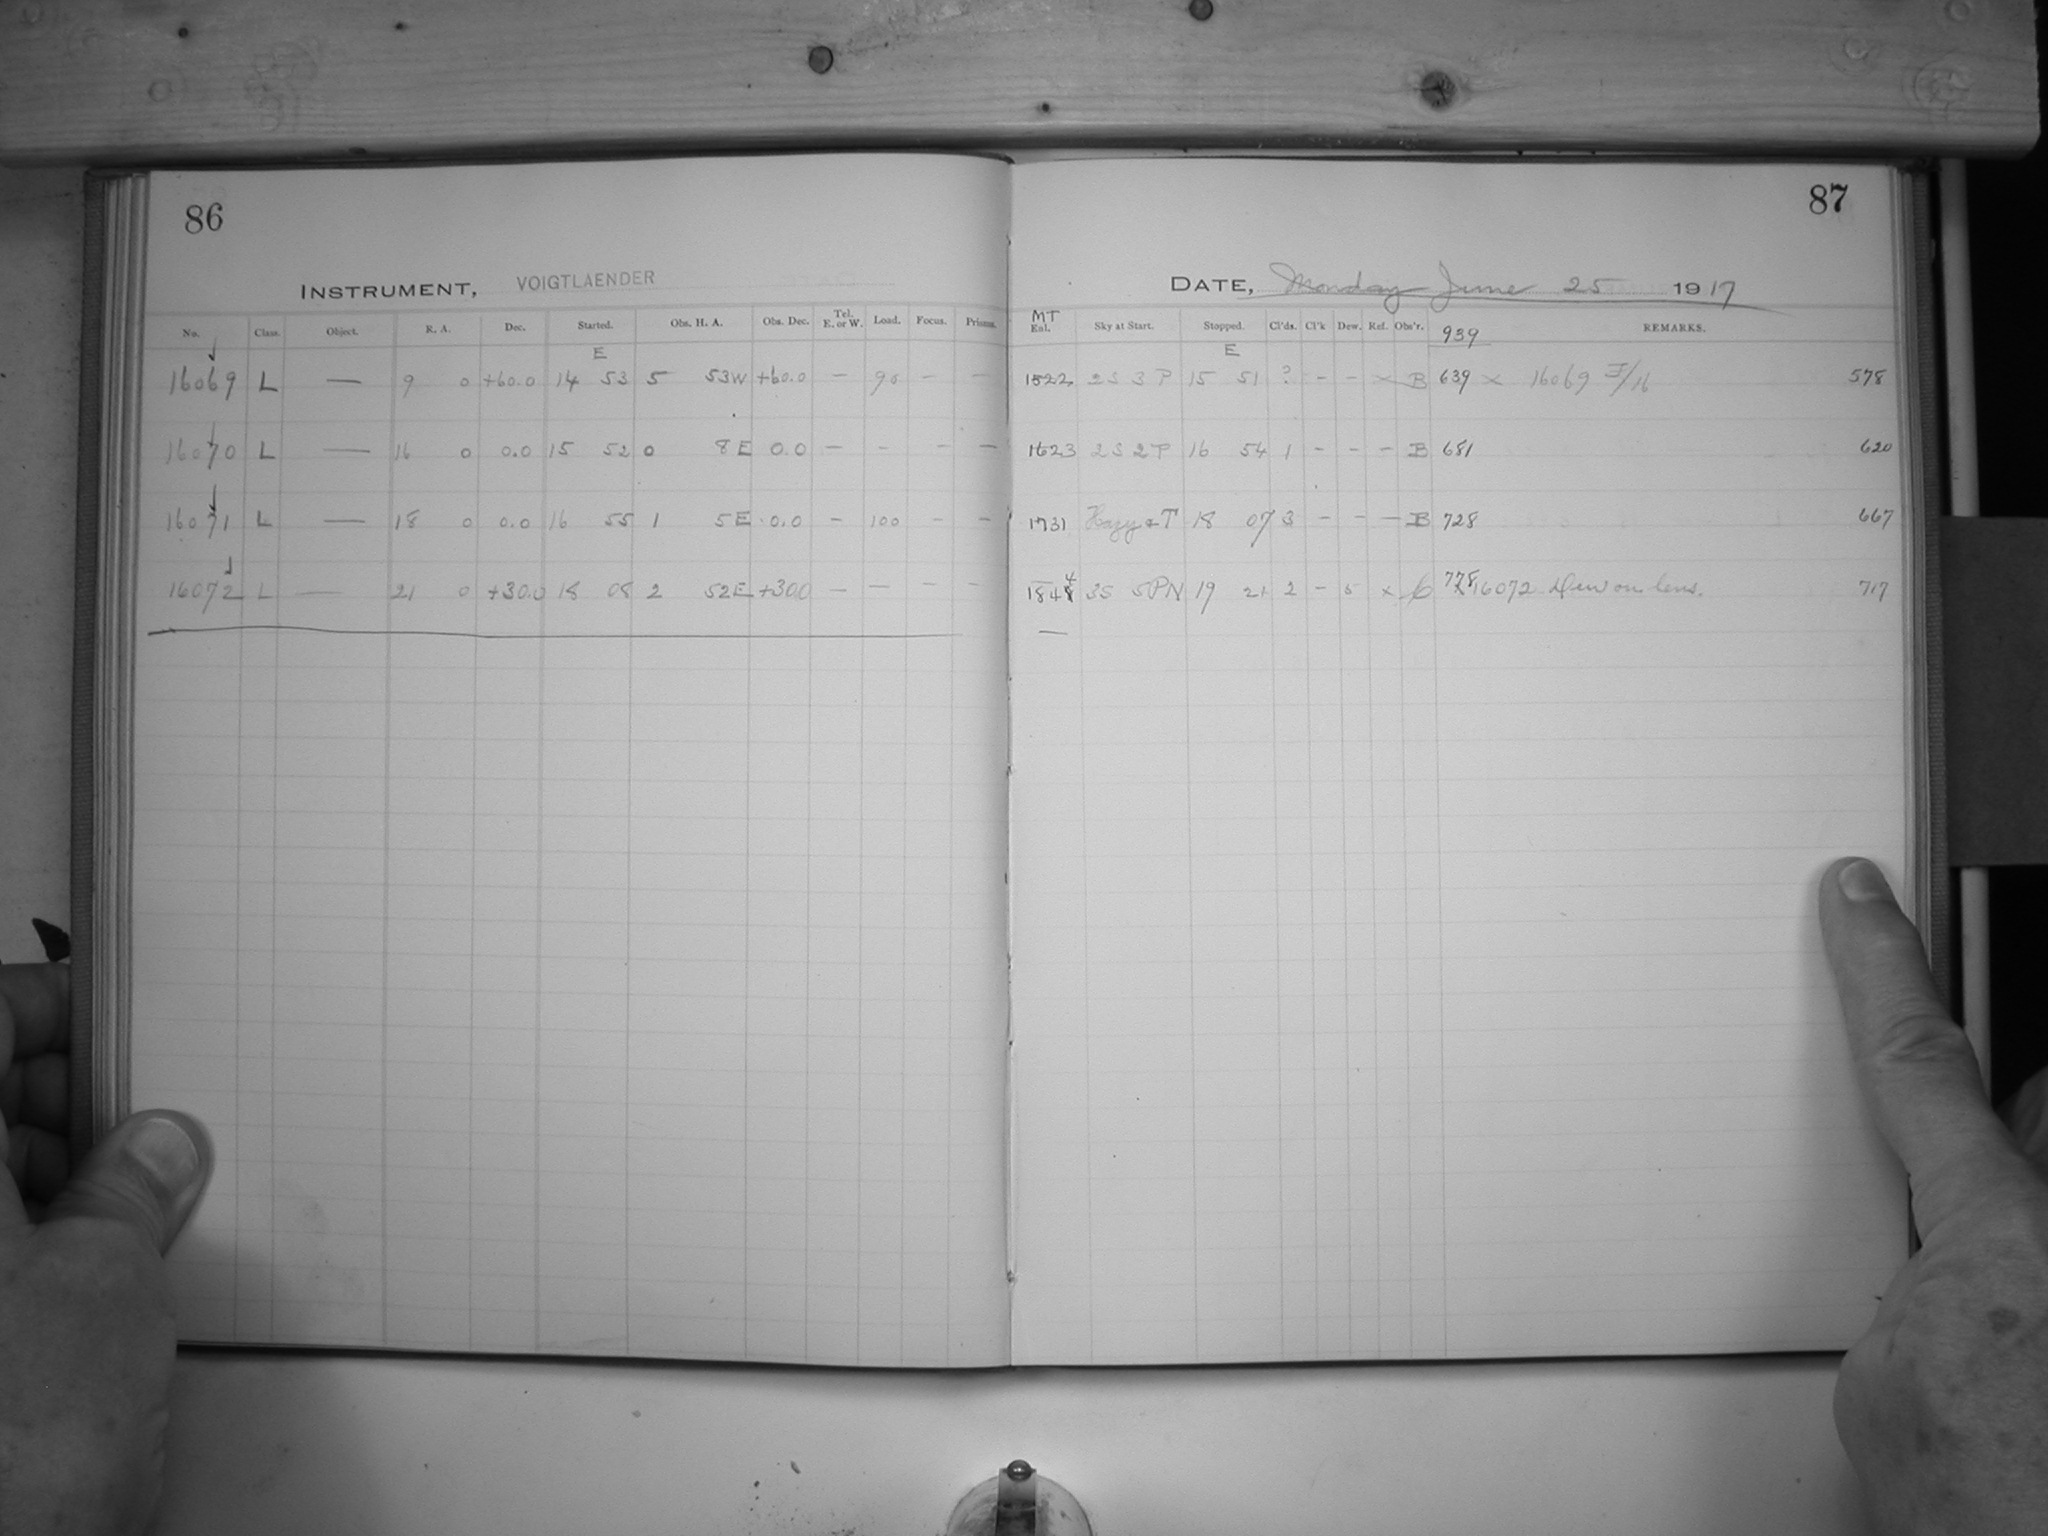 86
INSTRUMENT, VOIGTLAENDER
No. Class. Object. R. A. Dec. Started. Obs. H. A. Obs. Dec. Tel. E. or W. Load. Focus. Prisms.
E
16069 L — 9 0 +60.0 14 53 5 53W +60.0 — 90 — —
16070 L — 16 0 0.0 15 52 0 8E 0.0 — - - —
16071 L — 18 0 0.0 16 55 1 5E 0.0 — 100 - —
16072 L — 21 0 +30.0 18 08 2 52E +30.0 — — - —
87
DATE, Monday June 25 1917
MT
Exl. Sky at Start. Stopped. Cl'ds. Cl'k Dew. Ref. Obs'r. 939 REMARKS.
E
1522 2S 3P 15 51 ? - - × B 639 × 16069 I/16 578
1623 2S 2P 16 54 1 - - - B 681 620
1731 Hazy & T 18 07 3 - - - B 728 667
184 4 3S 5PN 19 21 2 - 5 × 778 × 16072 Dew on lens. 717